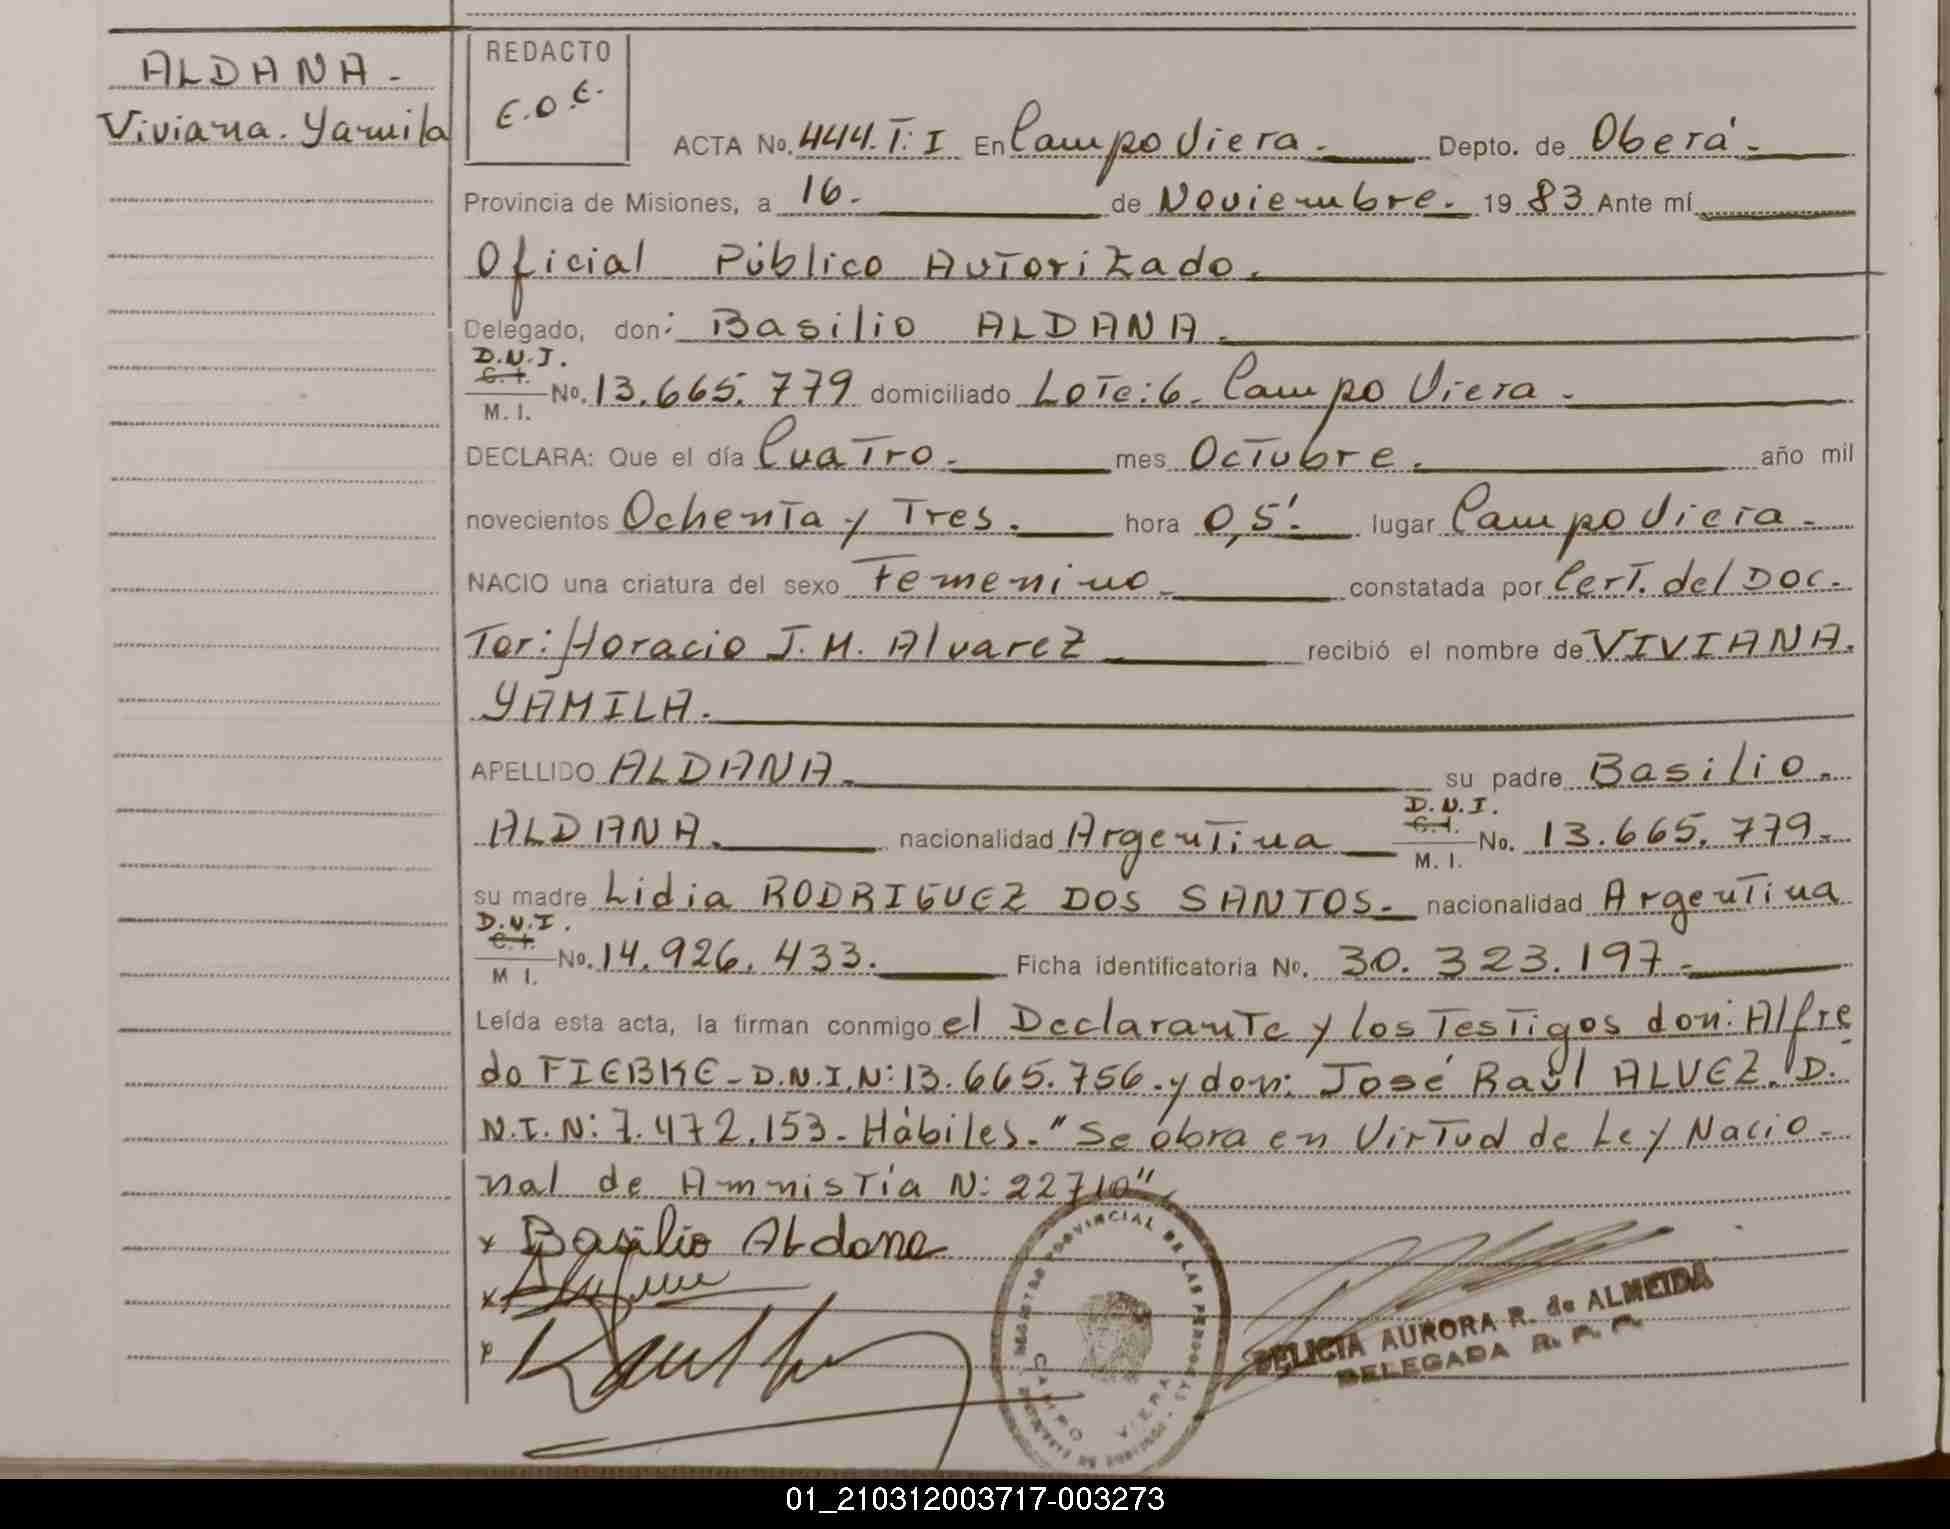 ALDANA.
Viviana. Yamila
REDACTO
E.O.E.
ACTA No. 444.T:I En Campo Viera. Depto. de Oberá.
Provincia de Misiones, a 16. de Noviembre. 19 83 Ante mí
Oficial Público Autorizado.
Delegado, don: Basilio ALDANA.
D.N.I.
C.I.
M. I. No. 13.665.779 domiciliado Lote:6. Campo Viera.
DECLARA: Que el día Cuatro. mes Octubre. año mil
novecientos Ochenta y Tres. hora 0,5'. lugar Campo Viera.
NACIO una criatura del sexo Femenino. constatada por Cert. del Doc.
Tor: Horacio J. M. Alvarez recibió el nombre de VIVIANA.
YAMILA.
APELLIDO ALDANA. su padre Basilio.
ALDANA. nacionalidad Argentina D.N.I. C.I. M. I. No. 13.665.779.
su madre Lidia RODRIGUEZ DOS SANTOS. nacionalidad Argentina
D.N.I.
C.I.
M I. No. 14.926.433. Ficha identificatoria No. 30.323.197.
Leída esta acta, la firman conmigo el Declarante y los Testigos don: Alfre
do FIEBKE - D.N.I.N: 13.665.756. y don: José Raúl ALVEZ. D.
N.I.N: 7.472.153. Hábiles. "Se obra en Virtud de Ley Nacio-
nal de Amnistía N: 22710".
x Basilio Aldana
x
x
REGISTRO PROVINCIAL DE LAS PERSONAS
CAMPO VIERA
DELICIA AURORA R. de ALMEIDA
DELEGADA R. P. P.
01_210312003717-003273